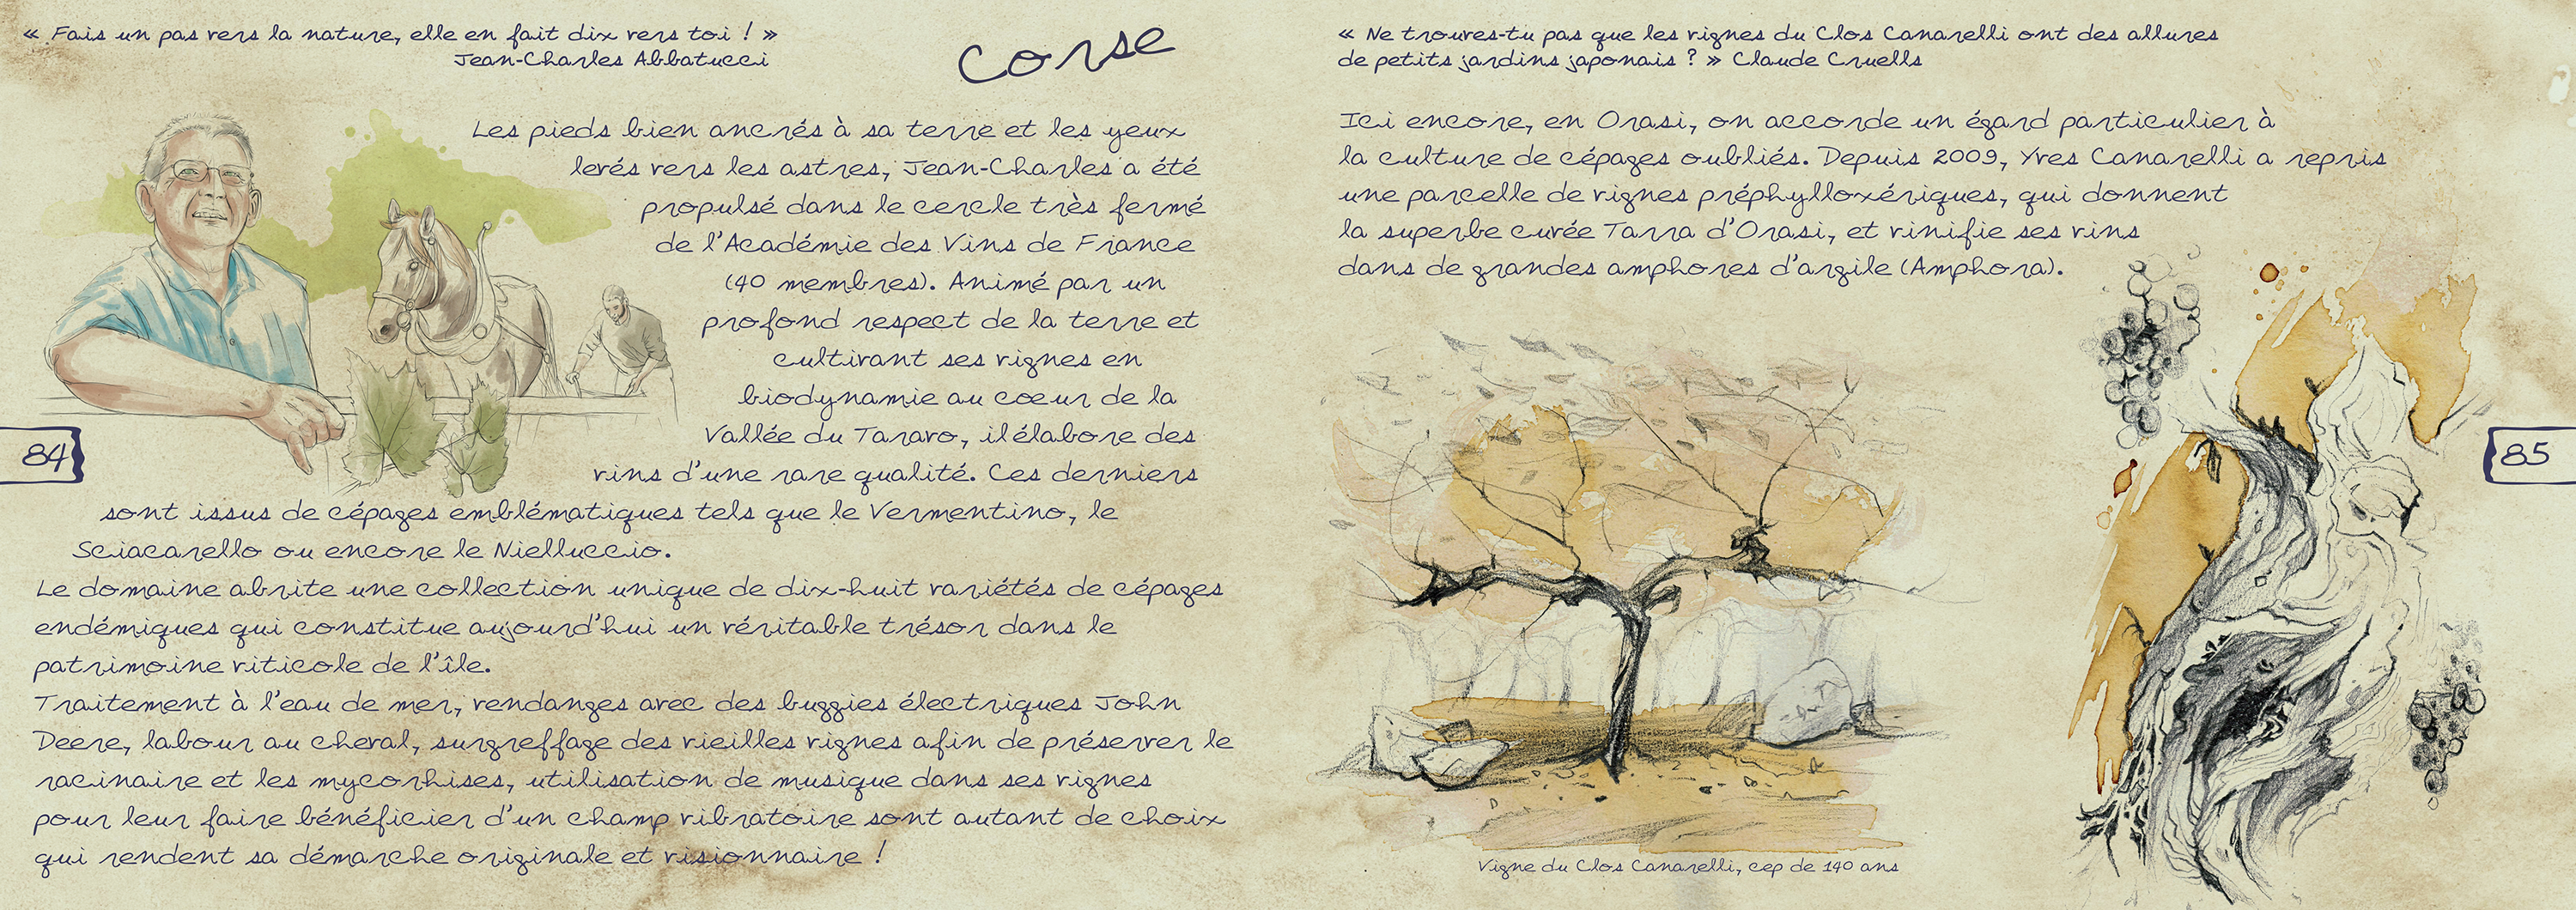 « Fais un pas vers la nature, elle en fait dix vers toi ! »
Jean-Charles Abbatucci
Corse
Les pieds bien ancrés à sa terre et les yeux
levés vers les astres, Jean-Charles a été
propulsé dans le cercle très fermé
de l'Académie des Vins de France
(40 membres). Animé par un
profond respect de la terre et
cultivant ses vignes en
biodynamie au cœur de la
Vallée du Taravo, il élabore des
vins d'une rare qualité. Ces derniers
sont issus de cépages emblématiques tels que le Vermentino, le
Sciacarello ou encore le Nielluccio.
Le domaine abrite une collection unique de dix-huit variétés de cépages
endémiques qui constitue aujourd'hui un véritable trésor dans le
patrimoine viticole de l'île.
Traitement à l'eau de mer, vendanges avec des buggies électriques John
Deere, labour au cheval, surgreffage des vieilles vignes afin de préserver le
racinaire et les mycorhises, utilisation de musique dans ses vignes
pour leur faire bénéficier d'un champ vibratoire sont autant de choix
qui rendent sa démarche originale et visionnaire !
84
« Ne trouves-tu pas que les vignes du Clos Canarelli ont des allures
de petits jardins japonais ? » Claude Cruells
Ici encore, en Orasi, on accorde un égard particulier à
la culture de cépages oubliés. Depuis 2009, Yves Canarelli a repris
une parcelle de vignes préphylloxériques, qui donnent
la superbe cuvée Tarra d'Orasi, et vinifie ses vins
dans de grandes amphores d'argile (Amphora).
Vigne du Clos Canarelli, cep de 140 ans
85